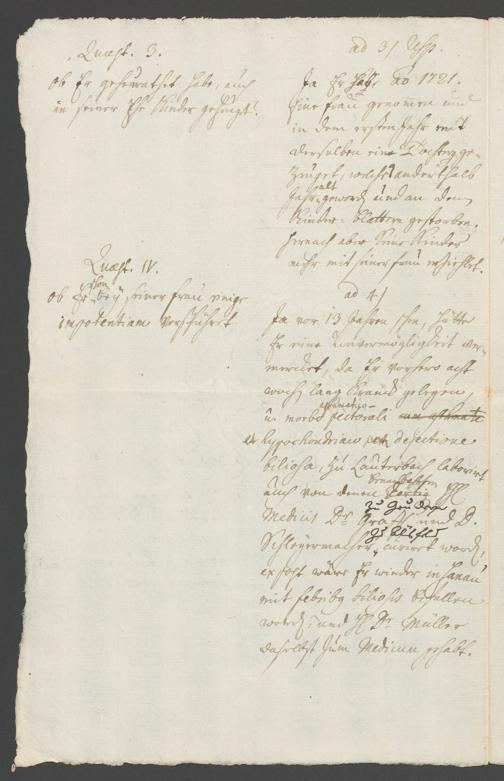 Quæst. 3.
ob Er geheurathet habe, auch
in seiner Ehe Kinder gezeugt?
ad 3/ Resp.
Ja Er habe ao 1721.
Eine frau genomen und
in dem ersten Jahr mit
derselben eine Tochter ge-
zeuget, welche anderthalb
Jahr alt geword. und an den
Kinder-blattern gestorben.
hernach aber keine Kinder
mehr mit seiner frau
Quæst. IV.
ob Er schon bey seiner frau einige
impotentiam verspühret
ad 4/
Ja vor 13 Jahren schon, hätte
Er eine Unvermögligkeit ver-
mercket, da Er vorhero acht
woch. lang kranck gelegen,
u. morbo pectorali
et hypochondriaco dejectione
biliosa, zu Lauterbach laborirt
auch von denen
Medicis Dr. Graff und D.
zu Alsfeld
Schleyermacher, curirt word.
ex post wäre Er wieder in Hanau
mit febribg biliosis befallen
word. und H. Dr. Müller
daselbst zum Medicum gehabt.